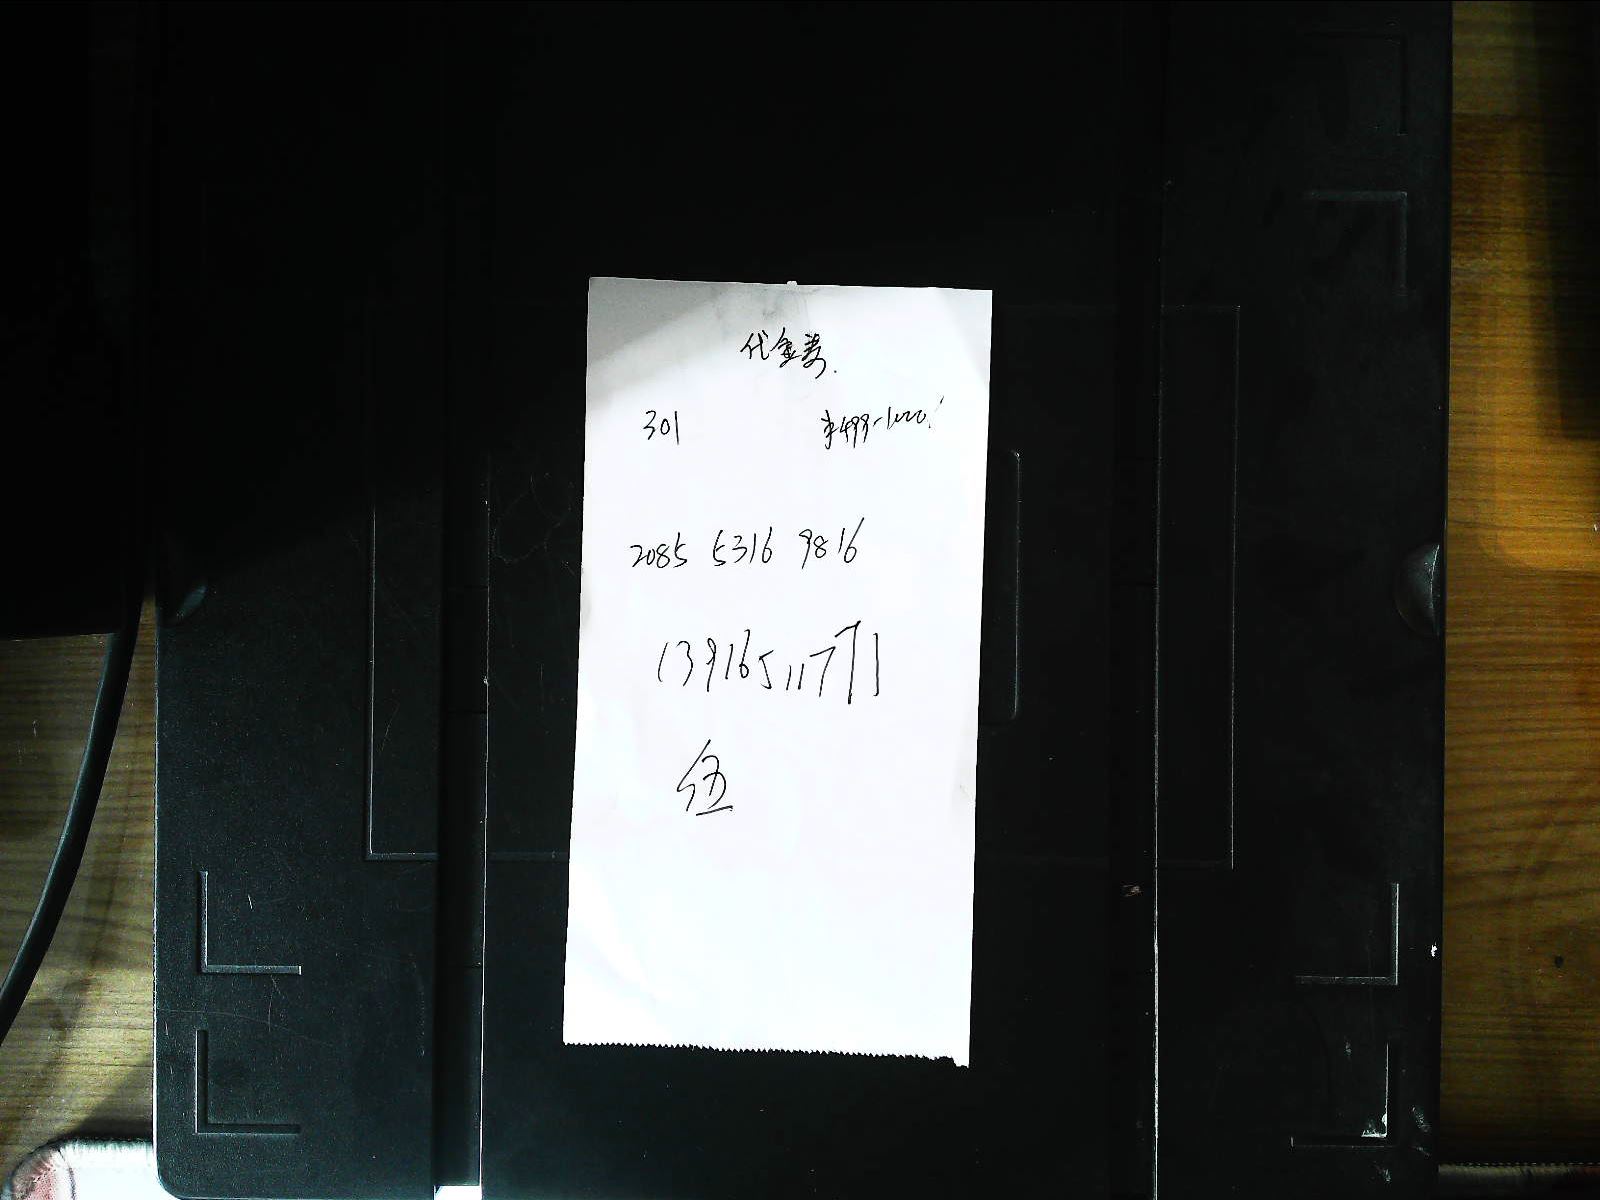 代金券.
301 ¥499-1000!
2085 5316 9816
13916511771
伍